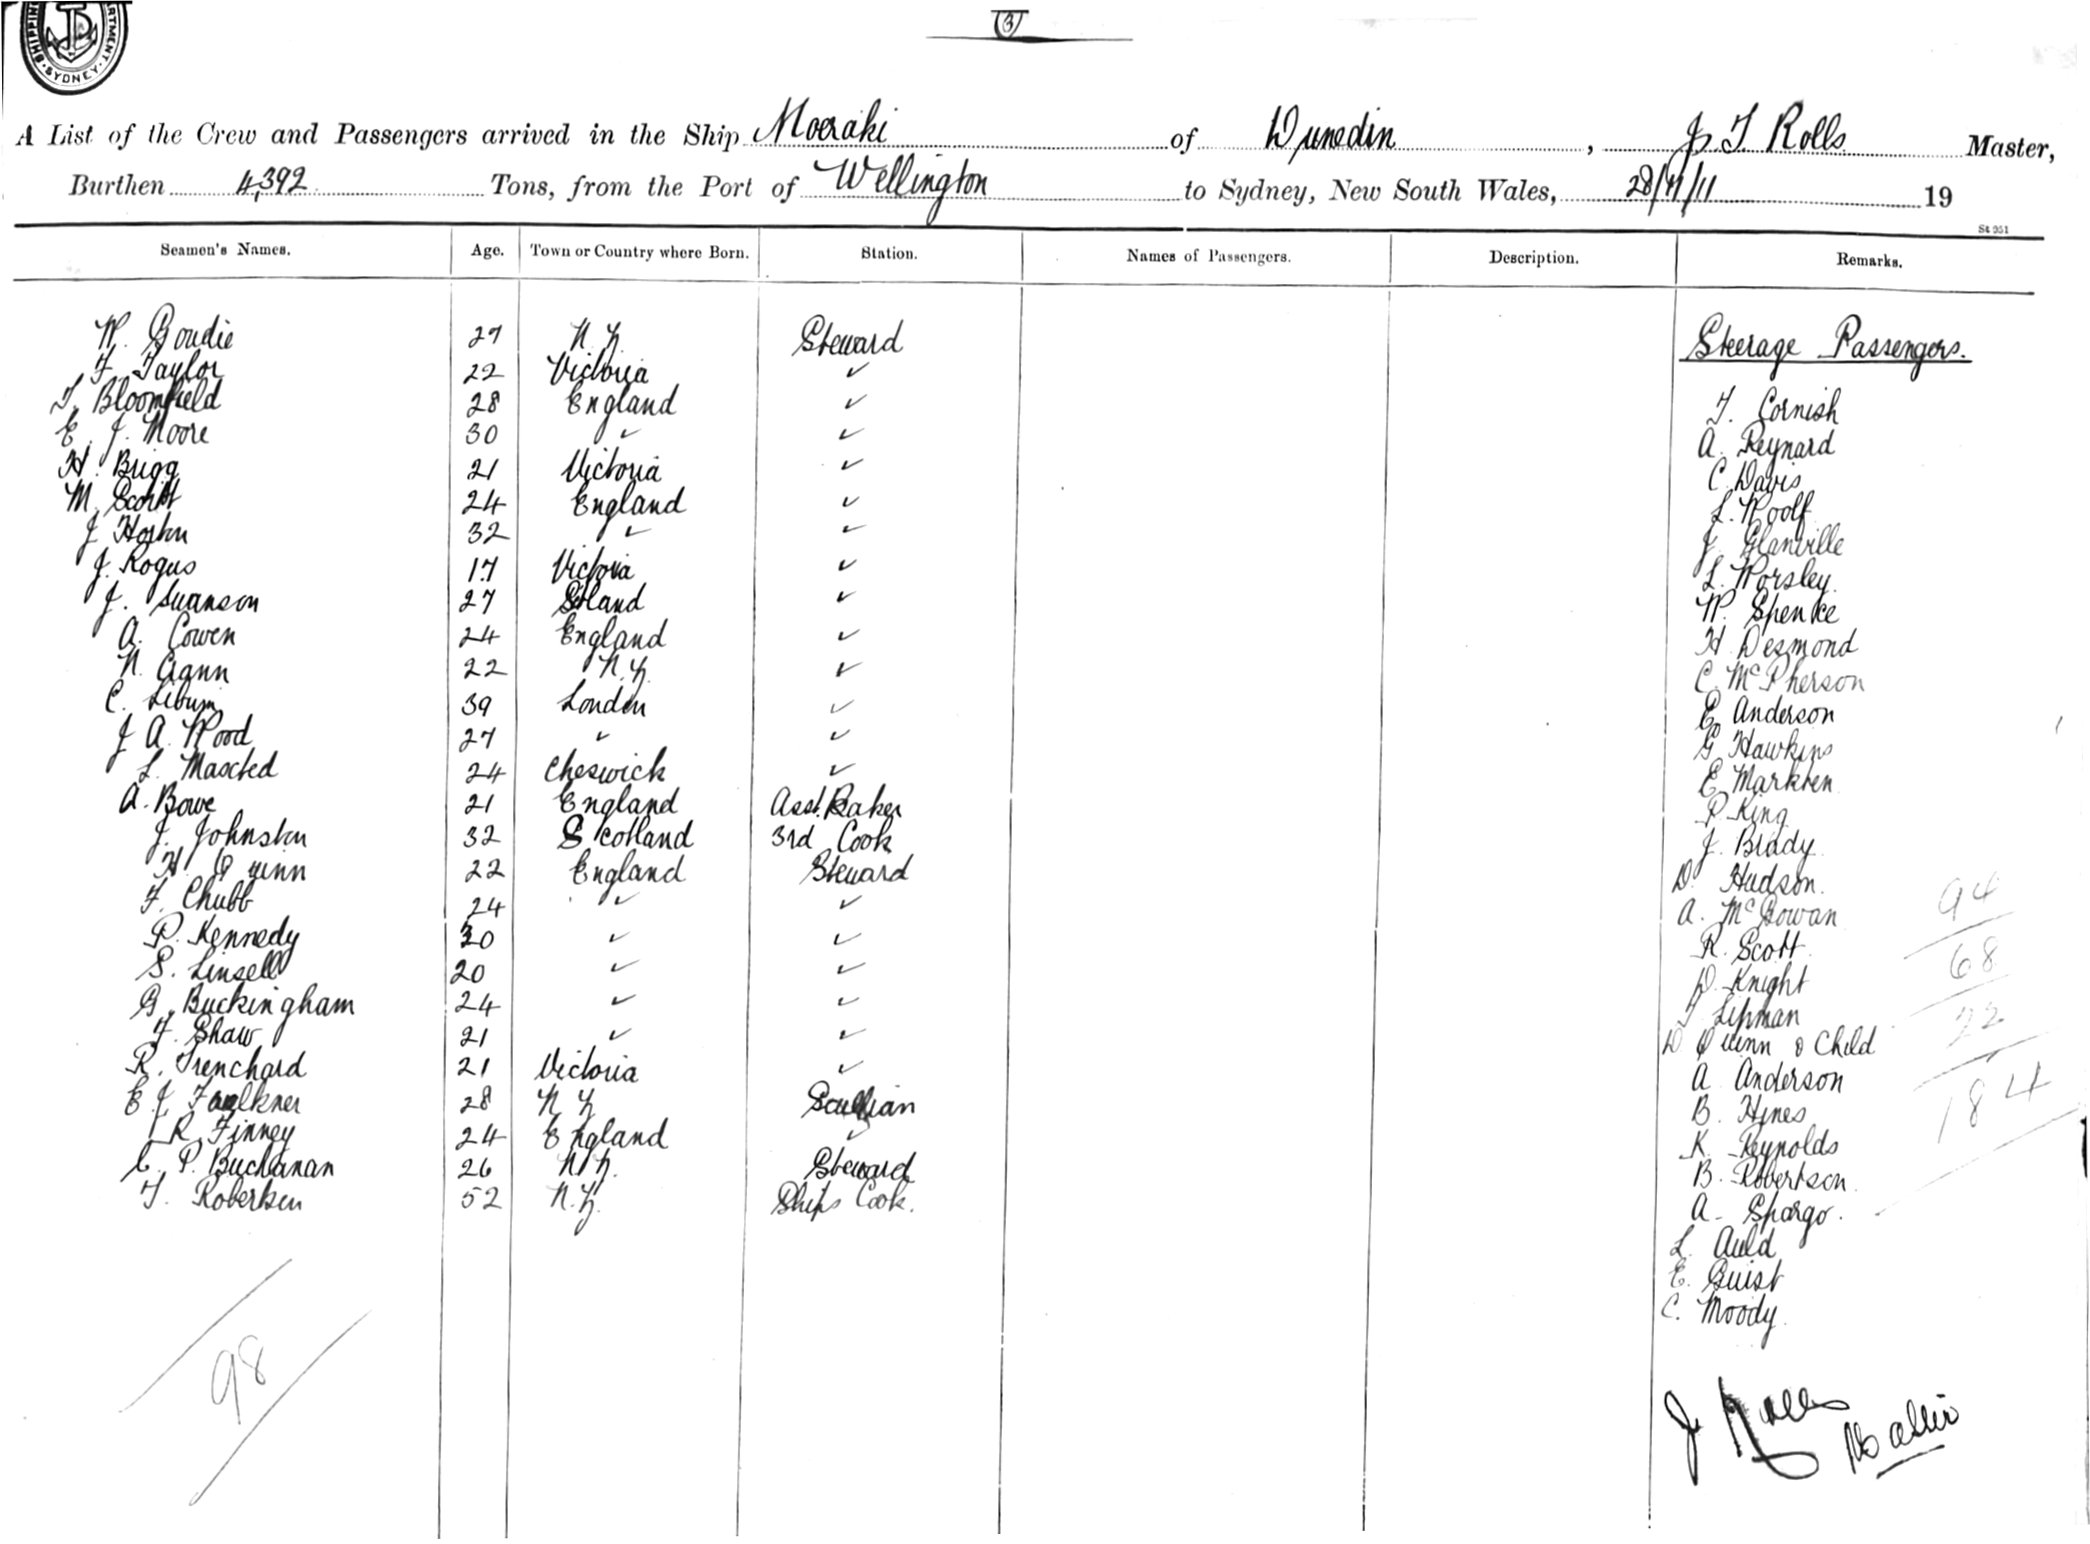 SHIPPING DEPARTMENT SYDNEY
3
A List of the Crew and Passengers arrived in the Ship Moeraki of Dunedin, J. T Rolls Master,
Burthen 4,392 Tons, from the Port of Wellington to Sydney, New South Wales, 28/11/11 19
St 951
Seamen's Names. Age. Town or Country where Born. Station. Names of Passengers. Description. Remarks.
W. Goudie 27 N.Z. Steward
F. Taylor 22 Victoria ✓
T. Bloomfield 28 England ✓
E. J. Moore 30 ✓ ✓
H. Brigg 21 Victoria ✓
M. Scott 24 England ✓
J. Horton 32 ✓ ✓
J. Rogus 17 Victoria ✓
J. Swanson 27 ✓
A. Cowen 24 England ✓
N. Gann 22 N.Z. ✓
C. 39 London ✓
J A. Wood 27 ✓ ✓
L. 24 Cheswick ✓
A. Bowe 21 England Asst. Baker
J. Johnston 32 Scotland 3rd Cook
H. Quinn 22 England Steward
F. Chubb 24 ✓ ✓
P. Kennedy 30 ✓ ✓
S. Linsell 20 ✓ ✓
G. Buckingham 24 ✓ ✓
F. Shaw 21 ✓ ✓
R. Trenchard 21 Victoria ✓
E J Faulkner 28 N Z
R. Finney 24 England ✓
C. P. Buchanan 26 N.Z. Steward
T. Robertson 52 N.Z. Ships Cook.
98
Steerage Passengers.
T. Cornish
A. Reynard
C. Davis
L. Woolf
J. Glanville
L. Worsley.
W. Spence
H. Desmond
C. McPherson
E. Anderson
G. Hawkins
E. Markren
P. King
J. Brady.
D. Hudson.
A. McGowan
R. Scott.
D. Knight
T Lipman
D Quinn & Child
A Anderson
B. Hines
K. Reynolds
B. Robertson.
A. Spargo.
L. Auld
E. Buist
C. Moody.
94
68
22
184
J. Rolls
Master